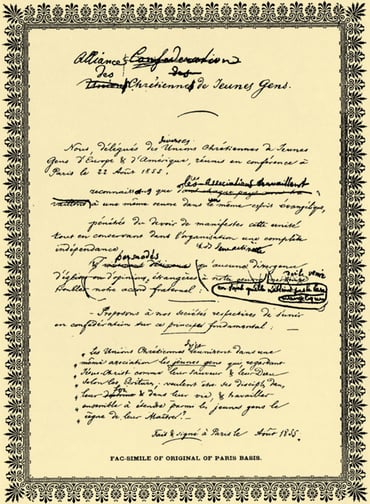 Alliance Confédération
des des
Unions Chrétiennes de Jeunes Gens.
diverses
Nous, délégués de Unions Chrétiennes de Jeunes
Gens d'Europe & d'Amérique, réunis en conférence à
Paris le 22 Août 1855,
reconnaissant que les Associations travaillent
à une même œuvre dans le même esprit Évangélique,
pénétrés du devoir de manifester cette unité
tout en conservant dans l'organisation une complète
indépendance,
par modes
aucune divergence
d'opinion étrangères à notre
troubler notre accord fraternel.
— Proposons à nos sociétés respectives de s'unir
en confédération sur ce principe fondamental :
Les Unions Chrétiennes réunissent dans une
même association les jeunes gens qui regardant
Jésus-Christ comme leur Sauveur & leur Dieu
selon les Écritures, veulent être ses disciples dans
leur foi & dans leur vie & travailler
ensemble à étendre parmi les jeunes gens le
règne de leur Maître.
Fait & signé à Paris le Août 1855.
FAC-SIMILE OF ORIGINAL OF PARIS BASIS.